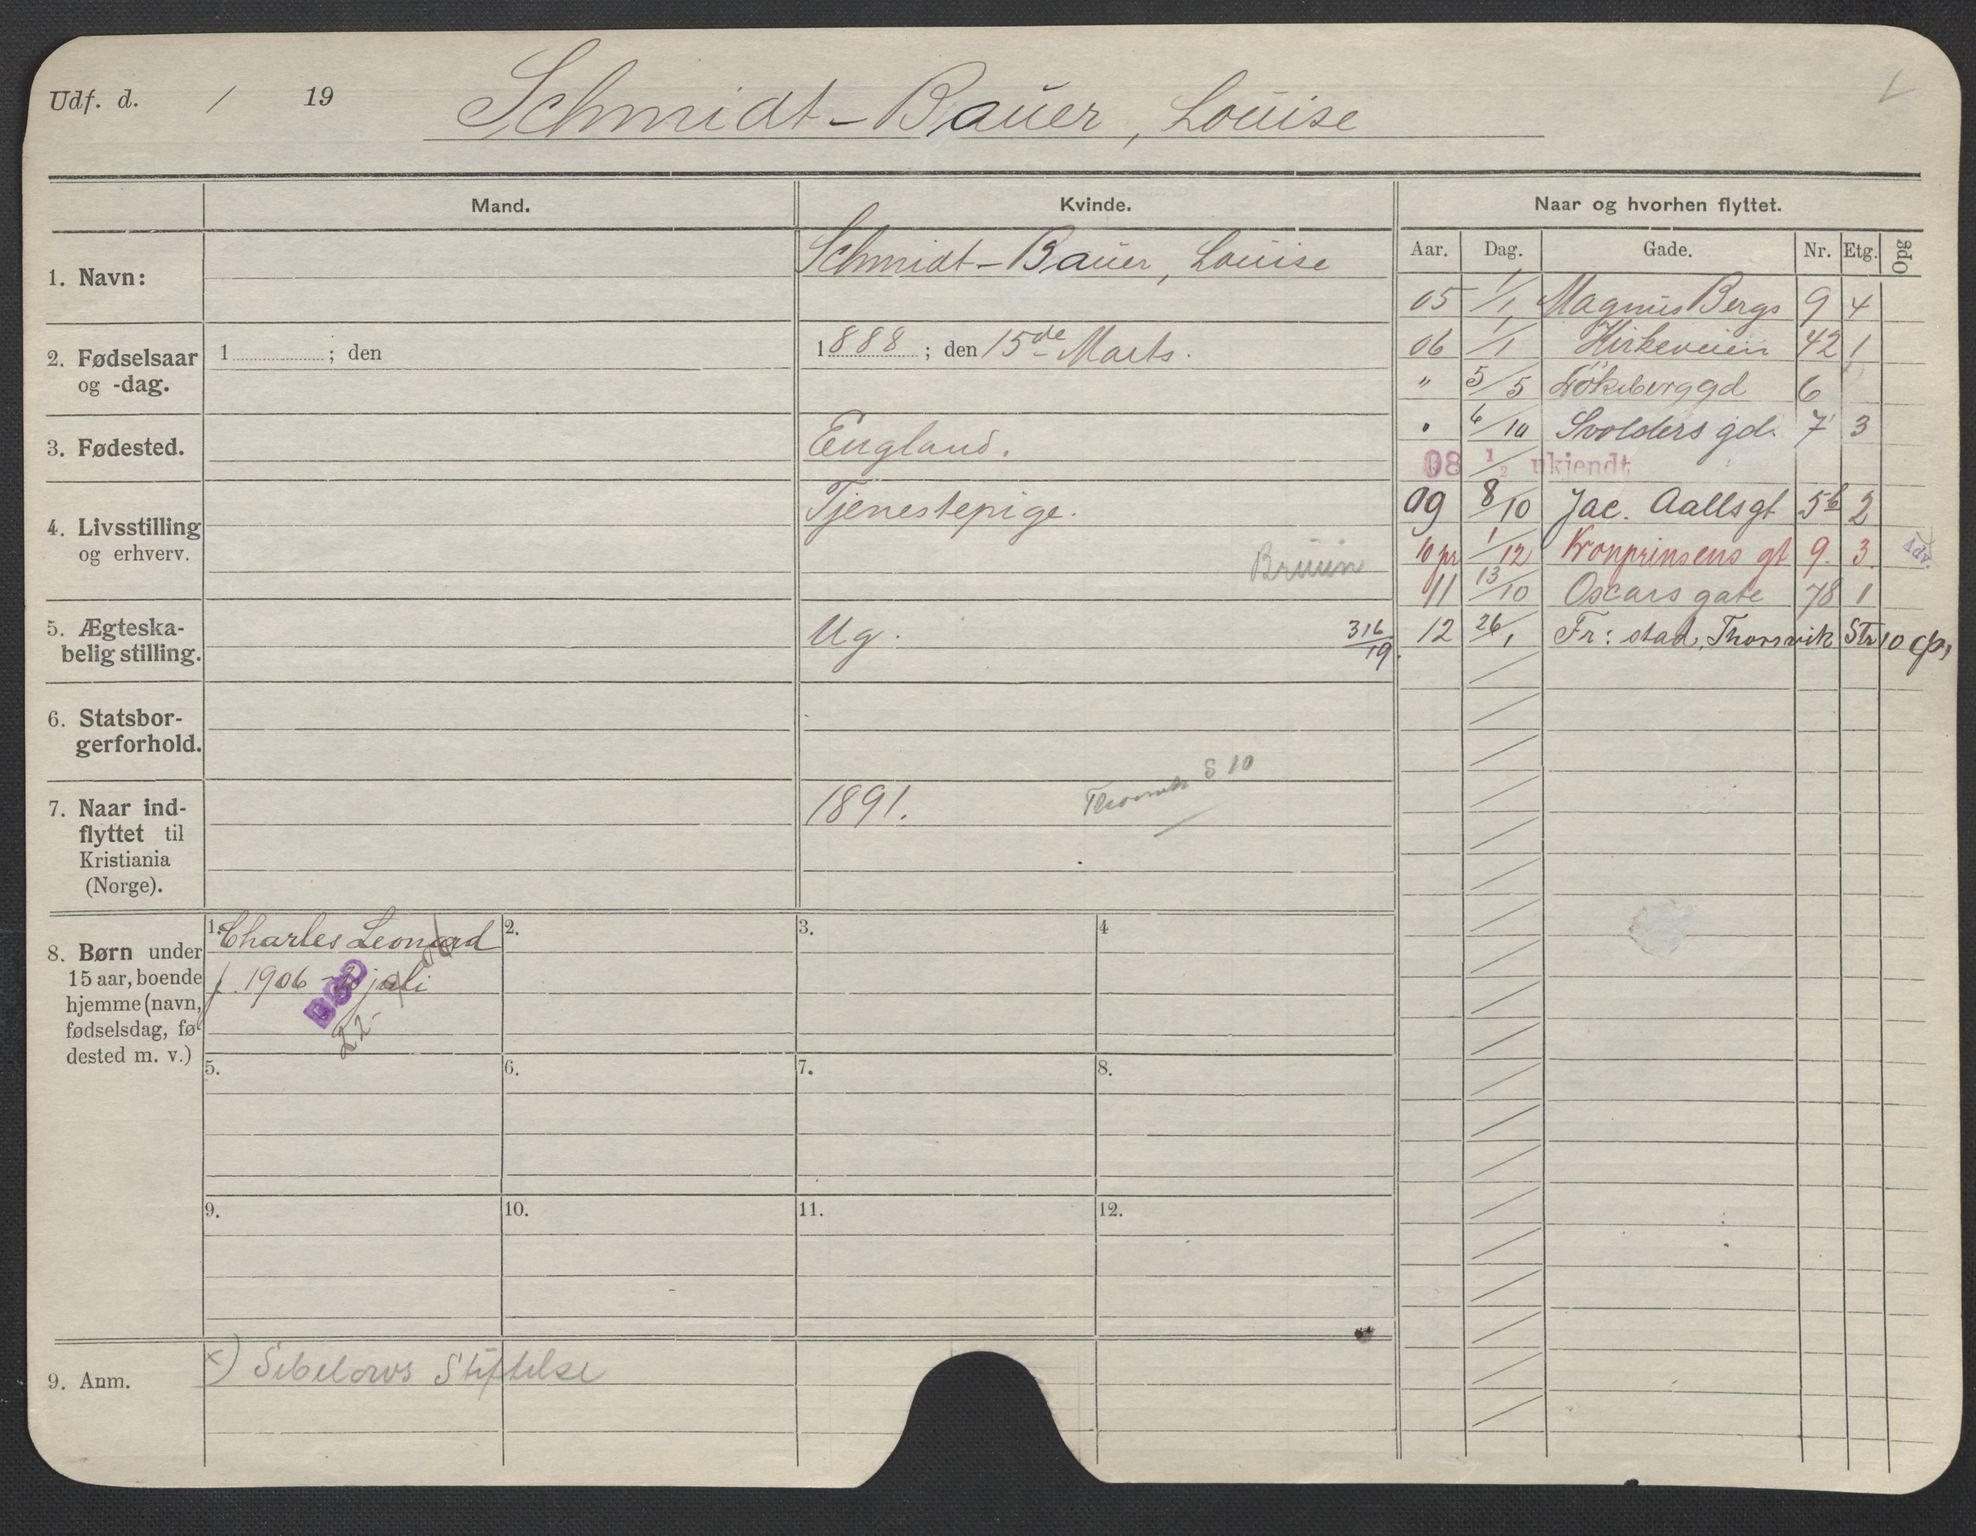 Udf. d. / 19
Schmidt-Bauer, Louise
Mand. Kvinde. Naar og hvorhen flyttet.
Aar. Dag. Gade. Nr. Etg. Opg
1. Navn: Schmidt-Bauer, Louise
05 1/1 Magnus Bergs 9 4
2. Fødselsaar og -dag. 1 ; den
1888 ; den 15de Marts.
06 1/1 Kirkeveien 42 1
" 5/5 Løkeberggd 6
3. Fødested. England.
6/10 Svolders gd. 7 3
08 1/2 ukjendt
4. Livsstilling og erhverv. Tjenestepige.
09 8/10 Jac. Aallsgt 5b 2
Bruun
10 pr 1/12 Kronprinsens gt 9. 3. Adv.
11 13/10 Oscars gate 78 1
5. Ægteska-
belig stilling. Ug. 316/19.
12 26/1 Fr: stad, Thorsvik Str 10
6. Statsbor-
gerforhold.
7. Naar ind-
flyttet til
Kristiania
(Norge).
1891. S 10
8. Børn under
15 aar, boende
hjemme (navn,
fødselsdag, fø-
dested m. v.)
1. Charles Leonard
f. 1906 - juli
22-
2.
3.
4
5.
6.
7.
8.
9.
10.
11.
12.
9. Anm. x) Sebelows Stiftelse